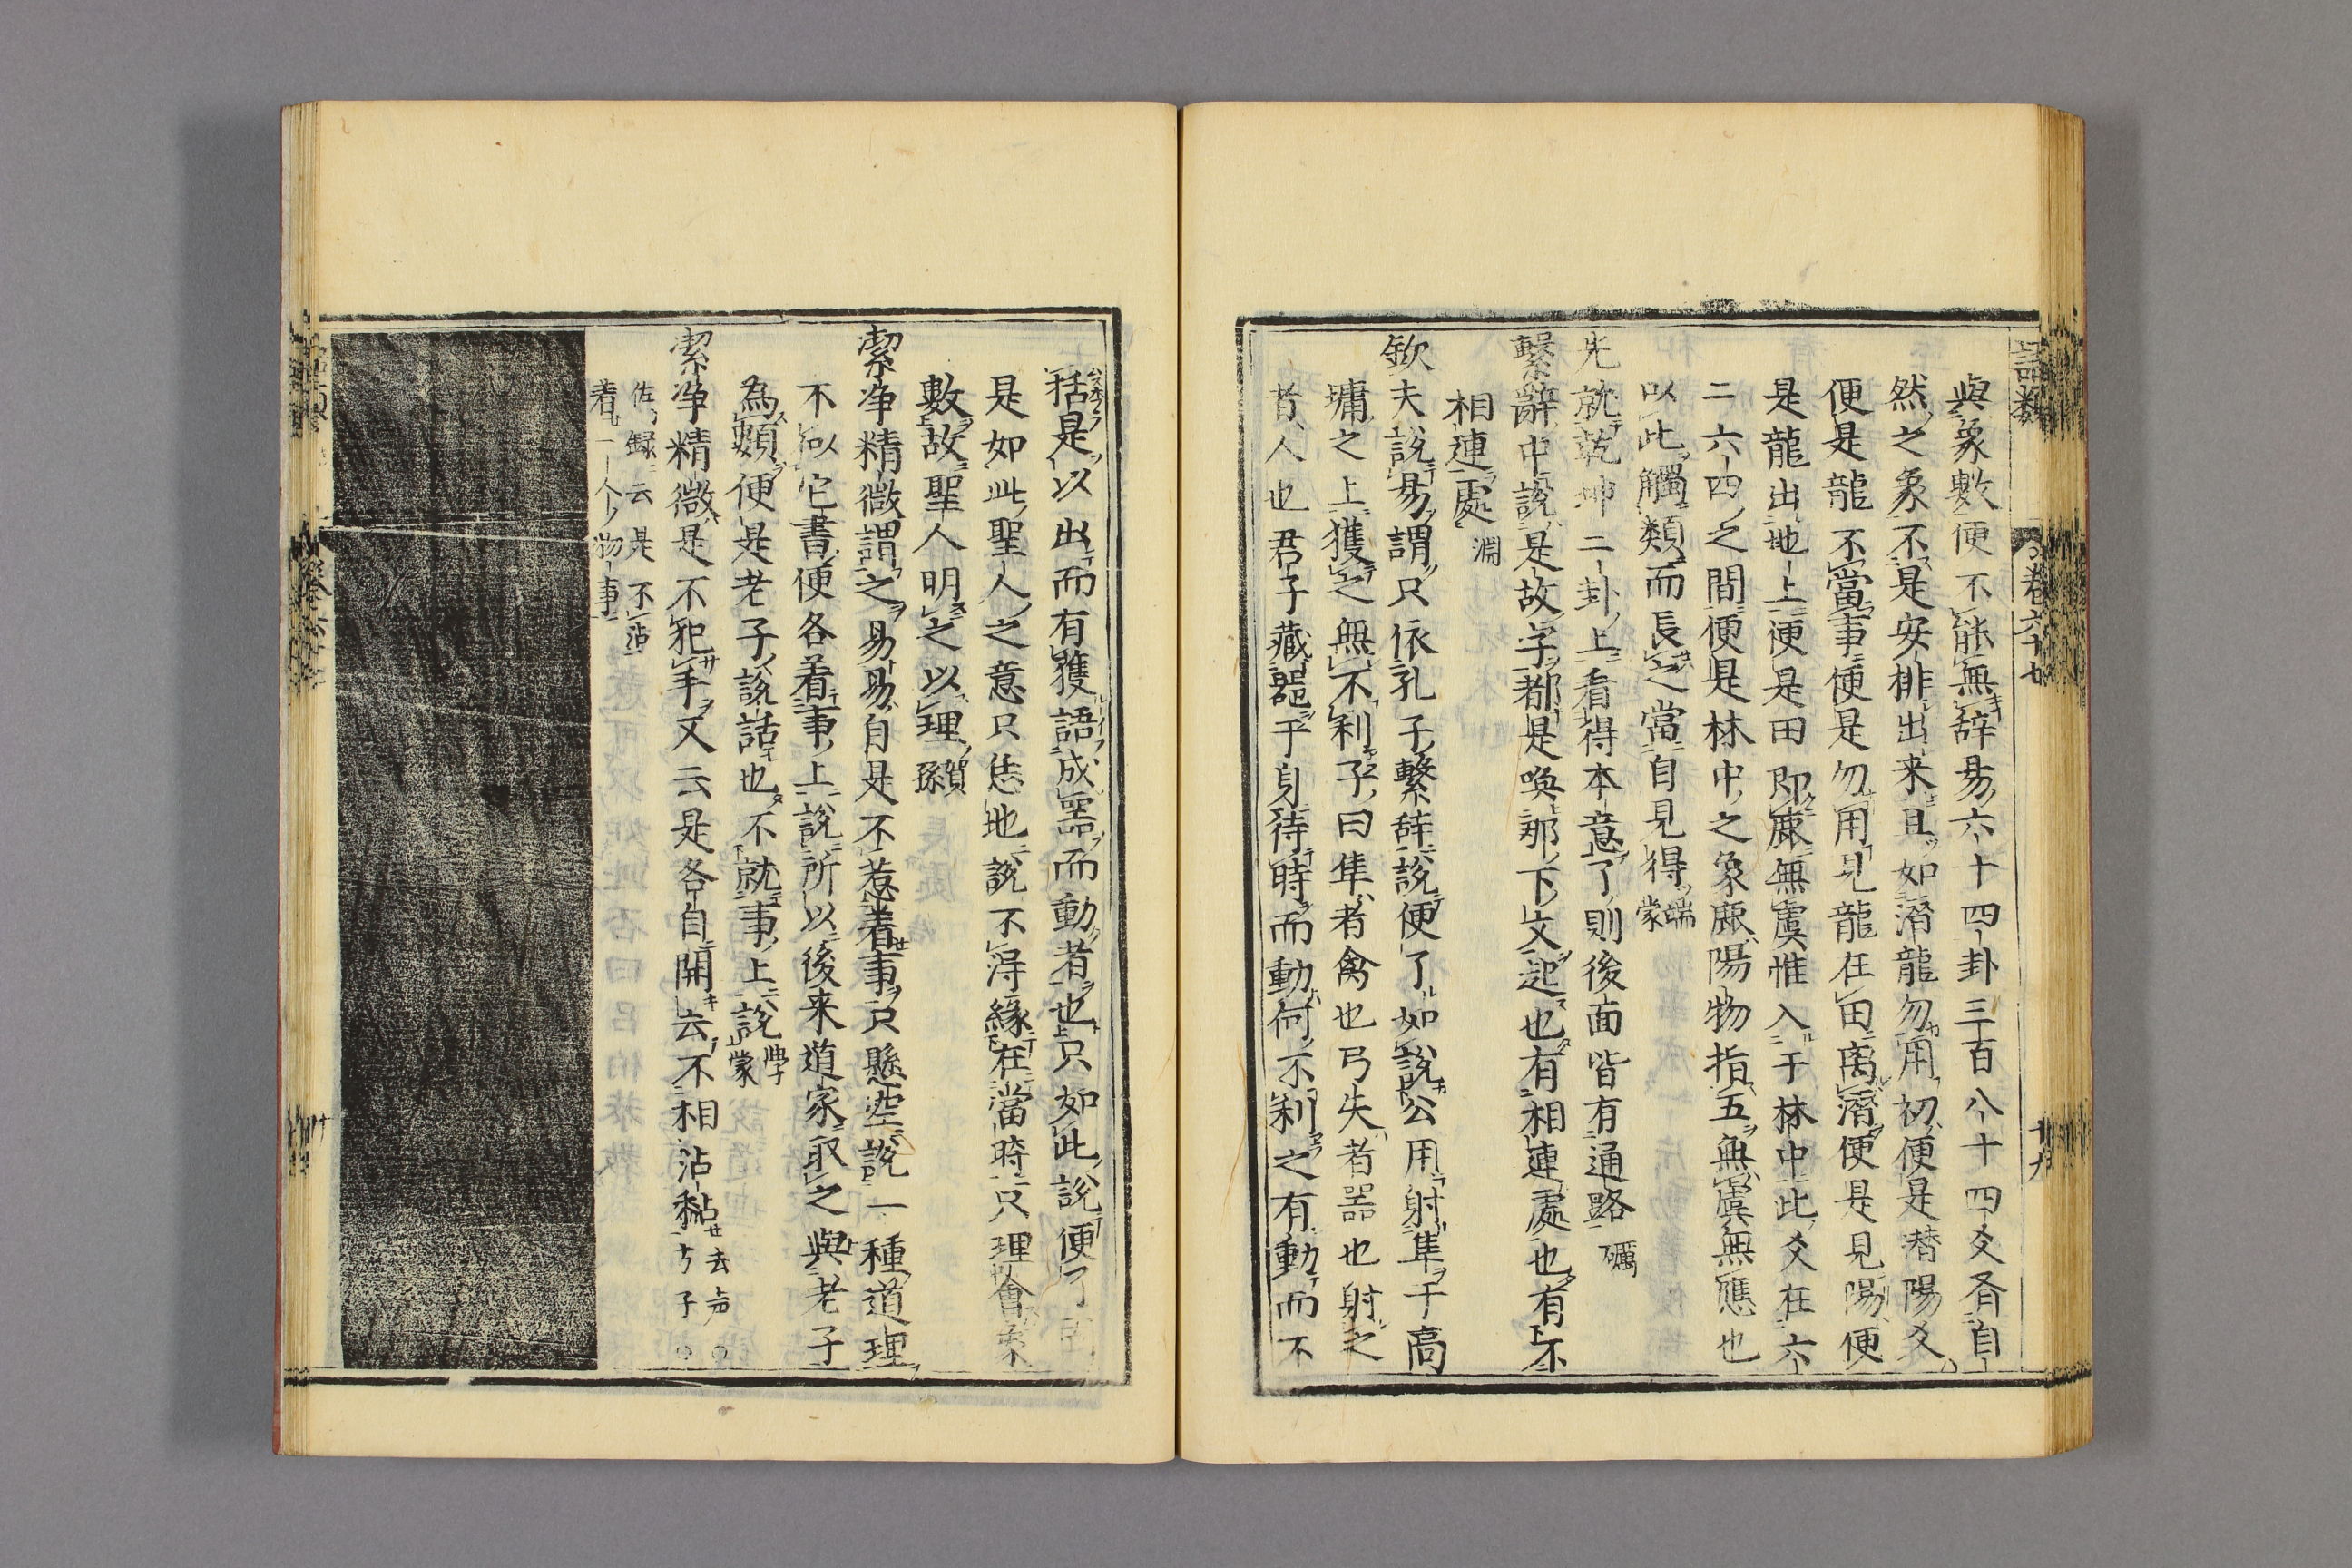 語類
卷六十七
十九
與象數便不能無辞易六十四卦三百八十四爻有自
然之象不是安排出来且如潛龍勿用初便是潜陽爻
便是龍不當事便是勿用見龍在田离潛便是見陽便
是龍出地上便是田即鹿無虞惟入于林中此爻在六
二六四之間便是林中之象鹿陽物指五無虞無應也
以此觸類而長之當自見得端蒙
先就乾坤二卦上看得本意了則後面皆有通路礪
繫辭中說是故字都是喚那下文起也有相連處也有不
相連處淵
欽夫說易謂只依孔子繫辞說便了如說公用射隼于高
墉之上獲之無不利子曰隼者禽也弓矢者器也射之
者人也君子藏噐于身待時而動何不利之有動而不
括是以出而有獲語成噐而動者也只如此說便了
是如此聖人之意只恁地說不得緣在當時只理會象
數故聖人明之以理賀孫
潔净精微謂之易易自是不惹着事只懸空說一種道理
不似它書便各着事上說所以後来道家取之與老子
為類便是老子說話也不就事上說學蒙
潔净精微是不犯手又云是各自開去不相沾黏去声方子○
佐録云是不沾
着一个物事○